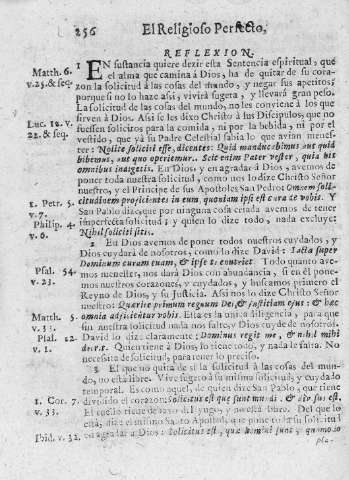 256 El Religioso Perfecto,
REFLEXION.
Matth. 6. v. 25. & seq.
1 EN sustancia quiere dezir esta Sentencia espiritual, que
el alma que camina á Dios, ha de quitar de su cora-
zon la solicitud á las cosas del mundo, y negar sus apetitos;
porque si no lo haze assi, vivirá sugeta, y llevará gran peso.
La solicitud de las cosas del mundo, no les conviene á los que
Luc. 12. v. 22. & seq.
sirven á Dios. Assi se les dixo Christo á sus Discipulos, que no
fuessen solicitos para la comida, ni por la bebida, ni por el
vestido, que yá su Padre Celestial sabía lo que avian menes-
ter: Nolite soliciti esse, dicentes: Quid manducabimus aut quid
bibemus, aut quo operiemur. Scit enim Pater vester, quia his
omnibus indigetis. En Dios, y en agradar á Dios, avemos de
poner toda nuestra solicitud, como nos lo dize Christo Señor
nuestro, y el Principe de sus Apostoles San Pedro: Omnem solli-
1. Petr. 5. v. 7.
citudinem projicientes in eum, quoniam ipsi est cura de vobis. Y
San Pablo dize, que por ninguna cosa criada avemos de tener
Philip. 4. v. 6.
impertinente solicitud; y quien lo dize todo, nada excluye:
Nihil soliciti sitis.
2 En Dios avemos de poner todos nuestros cuydados, y
Dios cuydará de nosotros, como lo dize David: Iacta super
Psal. 54. v. 23.
Dominum curam tuam, & ipse te enutriet. Todo quanto ave-
mos menester, nos dará Dios con abundancia, si en él pone-
mos nuestros corazones, y cuydados, y buscamos primero el
Reyno de Dios, y su Justicia. Assi nos lo dize Christo Señor
nuestro: Quærite primum regnum Dei, & justitiam ejus: & hæc
Matth. 5. v. 33.
omnia adjicientur vobis. Esta es la unica diligencia, para que
sin nuestra solicitud nada nos falte, y Dios cuyde de nosotros.
Psal. 22. v. 1.
David lo dize claramente: Dominus regit me, & nihil mihi
deerit. Quien tiene á Dios, lo tiene todo, y nada le falta. No
necessita de solicitud, para tener lo preciso.
3 El que no quita de sí la solicitud á las cosas del mun-
do, no está libre. Vive sugeto á su misma solicitud, y cuydado
temporal. Es como aquel, de quien dize San Pablo, que tiene
1. Cor. 7. v. 33.
dividido el corazon: Solicitus est quæ sunt mundi, & divisus est.
El cuello tiene debaxo del yugo, y no está libre. Del que lo
está, dize el mismo Santo Apostol, que pone todo su cuydado
Ibid. v. 32.
en agradar á Dios: Solicitus est, quæ Domini sunt, quomodo
pla-